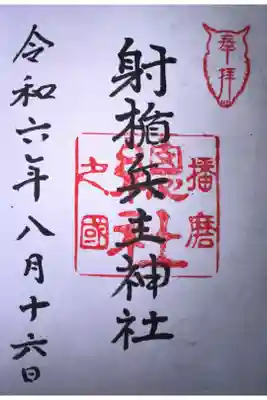 奉拝
射楯兵主神社
播磨
之國
総社
令和六年八月十六日